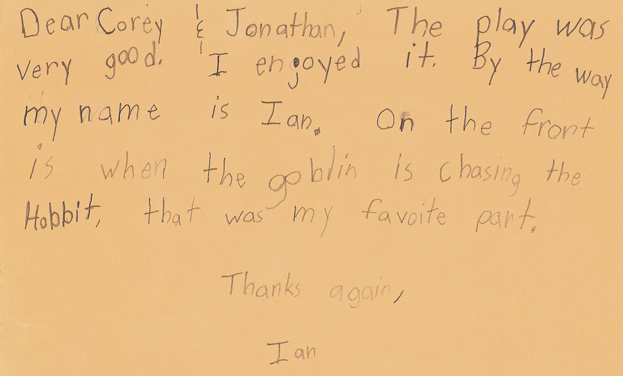 Dear Corey & Jonathan, The play was
very good. I enjoyed it. By the way
my name is Ian. On the front
is when the goblin is chasing the
Hobbit, that was my favoite part.
Thanks again,
Ian